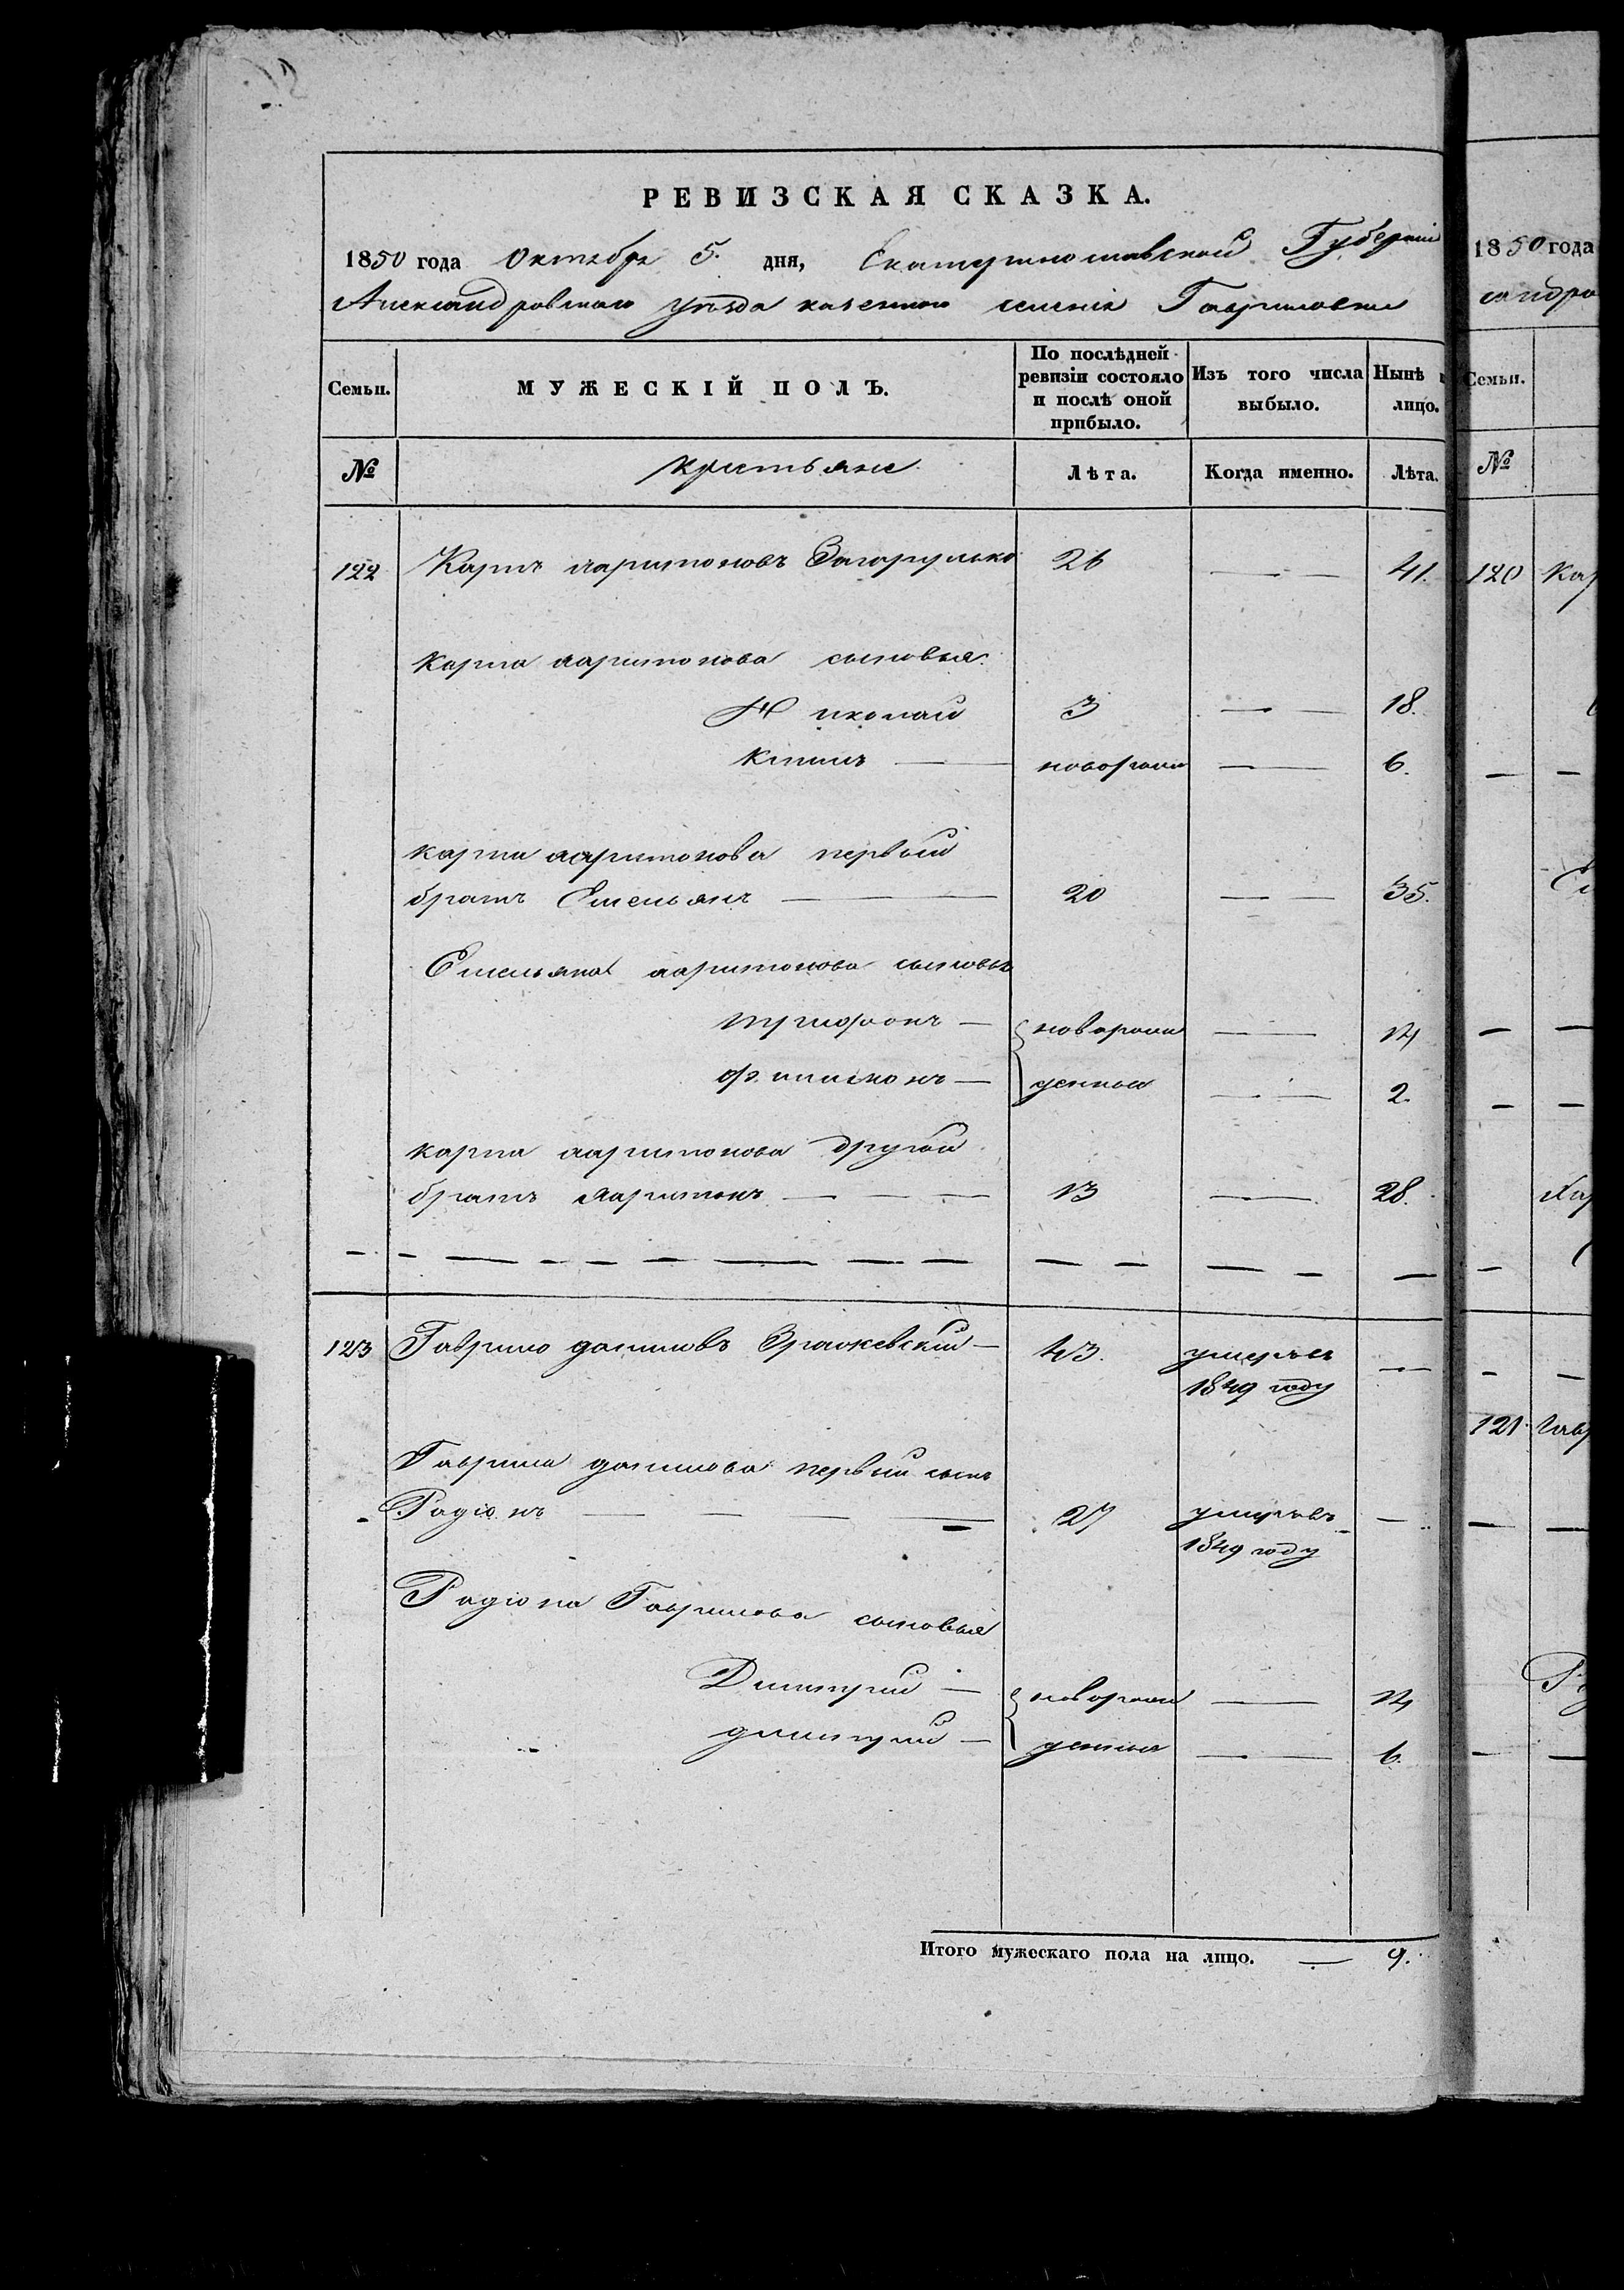 РЕВИЗСКАЯ СКАЗКА.
1850 года Октября 5. дня, Екатеринославской Губерніи
Александровскаго уѣзда казеннаго селенія Гавриловки
Семьи. МУЖЕСКІЙ ПОЛЪ. По послѣдней ревизіи состояло и послѣ оной прибыло. Изъ того числа выбыло. Нынѣ лицо.
№ крестьяне Лѣта. Когда именно. Лѣта.
122 Карпъ Харитоновъ Загорулько 26 — — 41.
Карпа Харитонова сыновья:
Николай 3 — — 18.
— новорожд — — 6.
Карпа Харитонова первый
братъ Емельянъ — — — 20 — — 35.
Емельяна Харитонова сыновья
Трифонъ — новорож — — 14
Филимонъ — денныя — — 2.
Карпа Харитонова другой
братъ Харитонъ — — — 13 — 28.
123 Гаврило Даниловъ — 43. умеръ въ —
1849 году
Гаврила Данилова первый сынъ
Радіонъ — — — — 27 умеръ въ —
1849 году
Радіона Гаврилова сыновья
Дмитрій — новорож — — 14
Дмитрій — денныя — — 6.
Итого мужескаго пола на лицо. — 9.
1850 года
сандро
Семьи.
№
120 Кар
Ем
Хар
121. Гавр